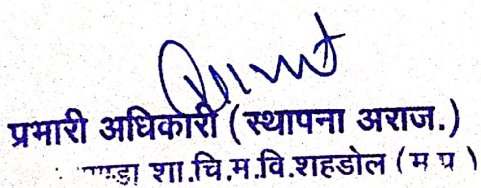 प्रभारी अधिकारी (स्थापना अराज.)
शा.चि.म.वि.शहडोल (म प्र)